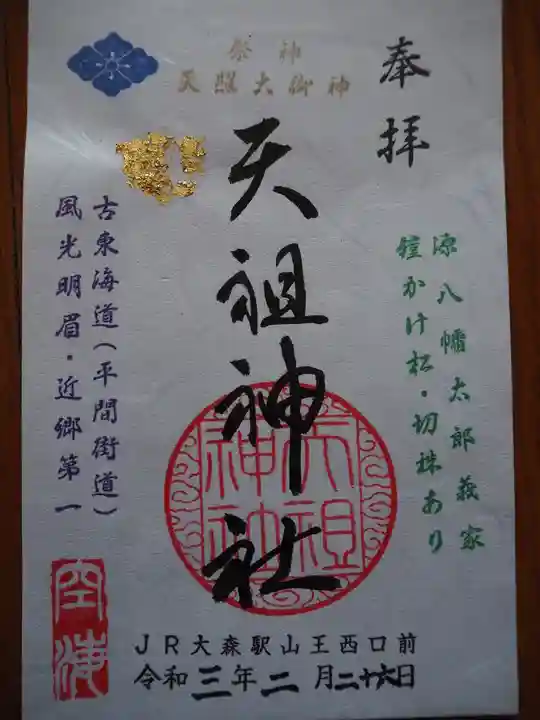 奉拝
祭神
天照大御神
天祖神社
源八幡太郎義家
鎧かけ松・切株あり
古東海道(平間街道)
風光明眉・近郷第一
天祖
神社
空海
JR大森駅山王西口前
令和三年二月二十六日